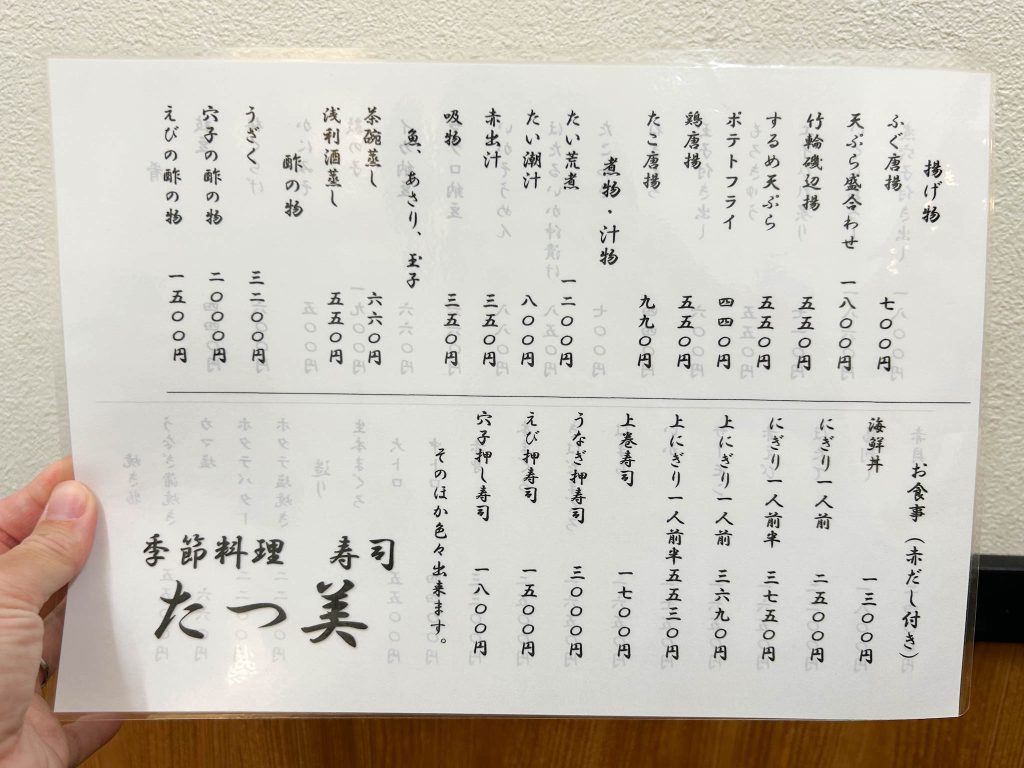 揚げ物
ふぐ唐揚 七〇〇円
天ぷら盛合わせ 一八〇〇円
竹輪磯辺揚 五五〇円
するめ天ぷら 五五〇円
ポテトフライ 四四〇円
鶏唐揚 五五〇円
たこ唐揚 九九〇円
煮物・汁物
たい荒煮 一二〇〇円
たい潮汁 八〇〇円
赤出汁 三五〇円
吸物 三五〇円
魚、あさり、玉子
茶碗蒸し 六六〇円
浅利酒蒸し 五五〇円
酢の物
うざく 三二〇〇円
穴子の酢の物 二〇〇〇円
えびの酢の物 一五〇〇円
お食事（赤だし付き）
海鮮丼 一三〇〇円
にぎり一人前 二五〇〇円
にぎり一人前半 三七五〇円
上にぎり一人前 三六九〇円
上にぎり一人前半 五五三〇円
上巻寿司 一七〇〇円
うなぎ押寿司 三〇〇〇円
えび押寿司 一五〇〇円
穴子押し寿司 一八〇〇円
そのほか色々出来ます。
季節料理 寿司
たつ美